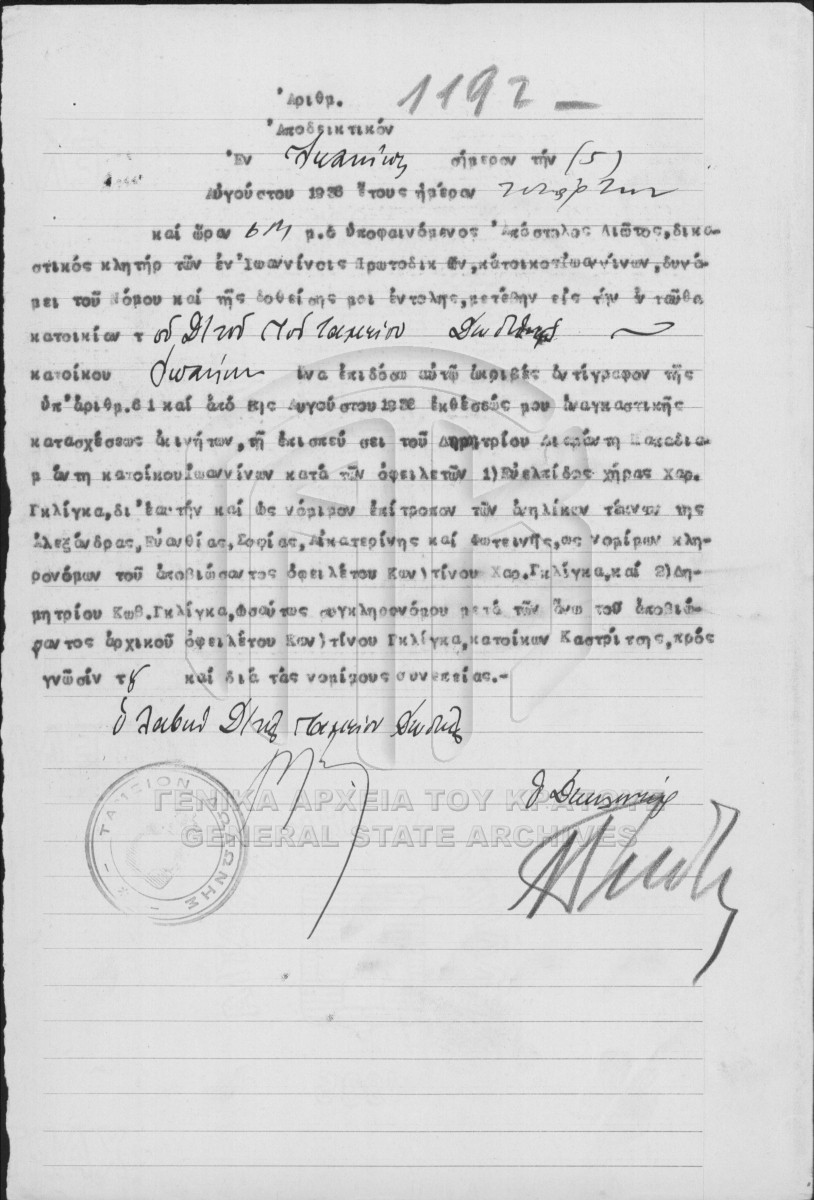 Ἀριθμ. 1192 —
Ἀποδεικτικόν
Ἐν σήμερον τήν (5)
Αὐγούστου 1936 ἔτους ἡμέραν τετάρτην
καί ὥραν 6 μ.μ ὁ ὑποφαινόμενος Ἀπόστολος Λιῶτος, δικα-
στικός κλητήρ τῶν ἐν Ἰωαννίνοις Πρωτοδικ ῶν, κάτοικος Ἰωαννίνων, δυνά-
μει τοῦ Νόμου καί τῆς δοθείσης μοι ἐντολῆς, μετέβην εἰς τήν ἐν ταῦθα
κατοικίαν τ οῦ Δ/τοῦ τοῦ Ταμείου Δωδώνης
κατοίκου ἵνα ἐπιδόσω αὐτῷ ἀκριβές ἀντίγραφον τῆς
ὑπ' ἀριθμ. 61 καί ἀπό Αὐγούστου 1936 ἐκθέσεώς μου ἀναγκαστικῆς
κατασχέσεως ἀκινήτων, τῇ ἐπισπεύ σει τοῦ Δημητρίου Διαμάντη Παπαδια-
μ άντη κατοίκου Ἰωαννίνων κατά τῶν ὀφειλετῶν 1) Εὐελπίδος χήρας Χαρ.
Γκλίγκα, δι' ἑαυτήν καί ὡς νόμιμον ἐπίτροπον τῶν ἀνηλίκων τέκνων της
Ἀλεξάνδρας, Εὐανθίας, Σοφίας, Αἰκατερίνης καί Φωτεινῆς, ως νομίμων κλη-
ρονόμων τοῦ ἀποβιώσαντος ὀφειλέτου Κων)τίνου Χαρ. Γκλίγκα, καί 2) Δη-
μητρίου Κωβ. Γκλίγκα, ὡσαύτως συγκληρονόμου μετά τῶν ἄνω τοῦ ἀποβιώ-
σαντος ἀρχικοῦ ὀφειλέτου Κων)τίνου Γκλίγκα, κατοίκων Καστρίτσης, πρός
γνῶσίν τ καί διά τάς νομίμους συνεπείας.-
ὁ λαβών Δ/τής Ταμείου Δωδώνης
ὁ Δικ. κλητήρ
ΤΑΜΕΙΟΝ ΔΩΔΩΝΗΣ
ΓΕΝΙΚΑ ΑΡΧΕΙΑ ΤΟΥ ΚΡΑΤΟΥΣ
GENERAL STATE ARCHIVES